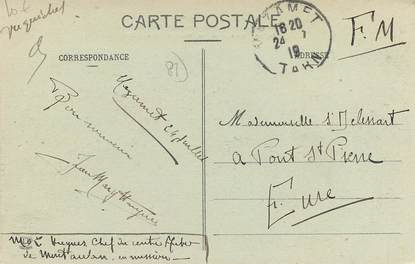 CARTE POSTALE
CORRESPONDANCE
ADRESSE
MAZAMET
18 20
24 7
19
TARN
F.M
81
Mazamet 24 juillet
Bon souvenir
Jean Mary Hugues
Mademoiselle
à Pont St Pierre
Eure
Hugues Chef de centre
de Montauban en mission